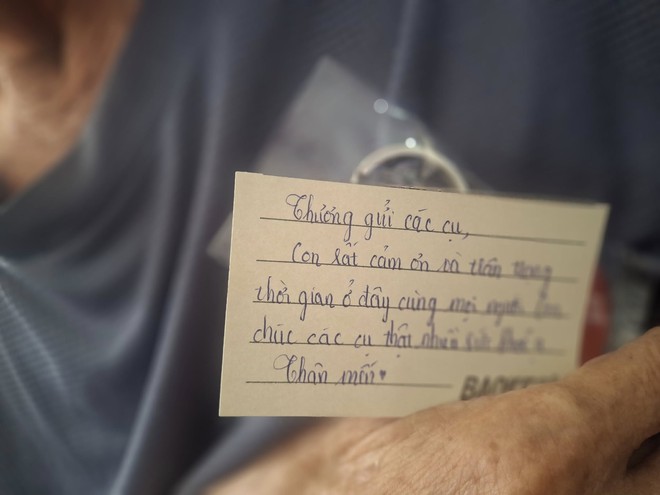 Thương gửi các cụ,
Con rất cảm ơn và trân trọng
thời gian ở đây cùng mọi người. Con
chúc các cụ thật nhiều sức khoẻ
Thân mến ♥